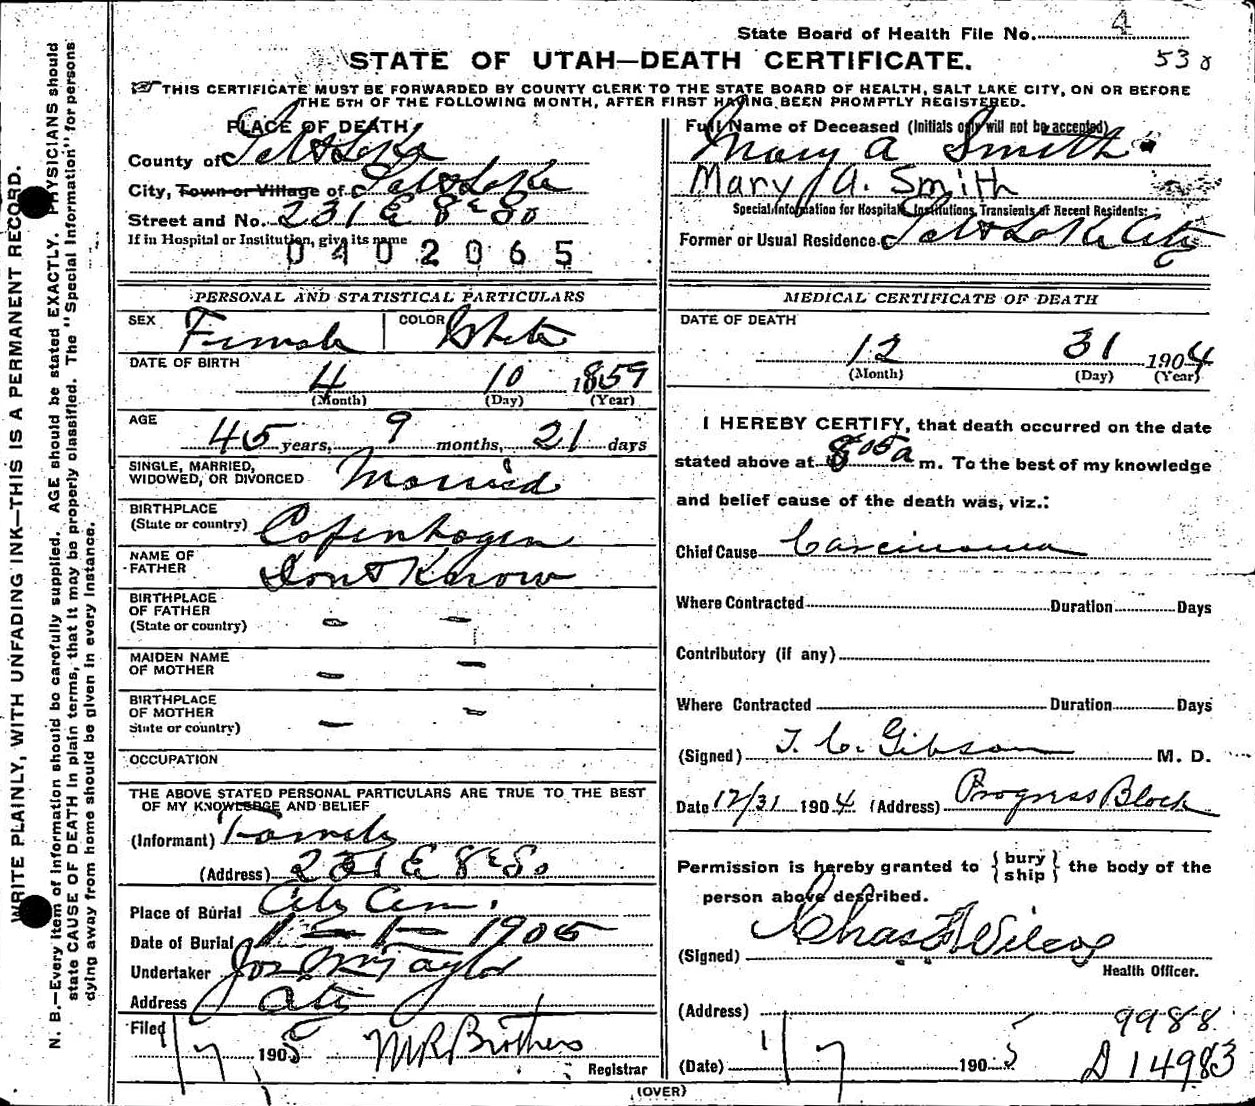 State Board of Health File No. 4
STATE OF UTAH—DEATH CERTIFICATE.
530
THIS CERTIFICATE MUST BE FORWARDED BY COUNTY CLERK TO THE STATE BOARD OF HEALTH, SALT LAKE CITY, ON OR BEFORE
THE 5TH OF THE FOLLOWING MONTH, AFTER FIRST HAVING BEEN PROMPTLY REGISTERED.
WRITE PLAINLY, WITH UNFADING INK—THIS IS A PERMANENT RECORD.
N. B.—Every item of information should be carefully supplied. AGE should be stated EXACTLY. PHYSICIANS should
state CAUSE OF DEATH in plain terms, that it may be properly classified. The "Special Information" for persons
dying away from home should be given in every instance.
PLACE OF DEATH
County of Salt Lake
City, Town or Village of Salt Lake
Street and No. 231 E 8th So
If in Hospital or Institution, give its name
0402065
PERSONAL AND STATISTICAL PARTICULARS
SEX Female COLOR White
DATE OF BIRTH
4 10 1859
(Month) (Day) (Year)
AGE
45 years, 9 months, 21 days
SINGLE, MARRIED,
WIDOWED, OR DIVORCED Married
BIRTHPLACE
(State or country) Copenhagen
NAME OF
FATHER Dont Know
BIRTHPLACE
OF FATHER
(State or country) – –
MAIDEN NAME
OF MOTHER – –
BIRTHPLACE
OF MOTHER
State or country) – –
OCCUPATION
THE ABOVE STATED PERSONAL PARTICULARS ARE TRUE TO THE BEST
OF MY KNOWLEDGE AND BELIEF
(Informant) Family
(Address) 231 E 8th So
Place of Burial City Cem.
Date of Burial 1 – 1 – 1905
Undertaker Jos Wm Taylor
Address City
Filed
1/7 1905 M R Brothers
Registrar
Full Name of Deceased (Initials only will not be accepted)
Mary A Smith
Mary A. Smith
Special Information for Hospitals, Institutions, Transients or Recent Residents:
Former or Usual Residence Salt Lake City
MEDICAL CERTIFICATE OF DEATH
DATE OF DEATH
12 31 1904
(Month) (Day) (Year)
I HEREBY CERTIFY, that death occurred on the date
stated above at 8 05 a m. To the best of my knowledge
and belief cause of the death was, viz.:
Chief Cause Carcinoma
Where Contracted Duration Days
Contributory (if any)
Where Contracted Duration Days
(Signed) T. C. Gibson M. D.
Date 12/31 1904 (Address) Progress Block
Permission is hereby granted to {bury ship} the body of the
person above described.
(Signed) Chas F Wilcox
Health Officer.
(Address)
9988
(Date) 1/7 1905
D 14983
(OVER)